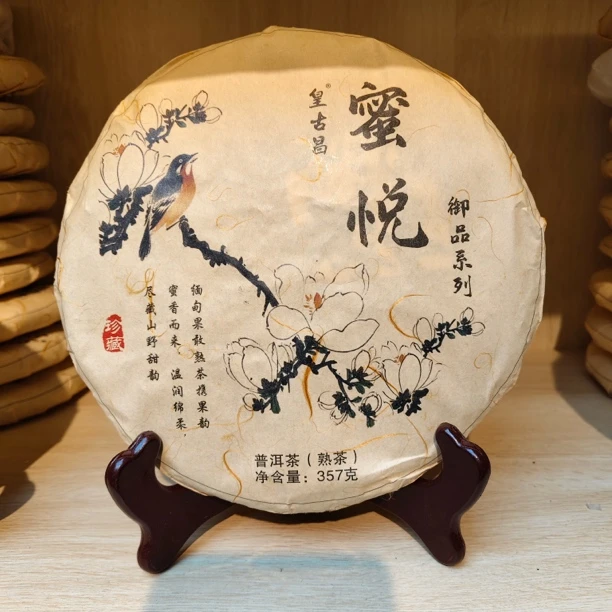 蜜悦
皇古昌®
御品系列
缅甸果敢熟茶携果韵
蜜香而来，温润绵柔
尽藏山野甜韵
珍藏
普洱茶（熟茶）
净含量：357克